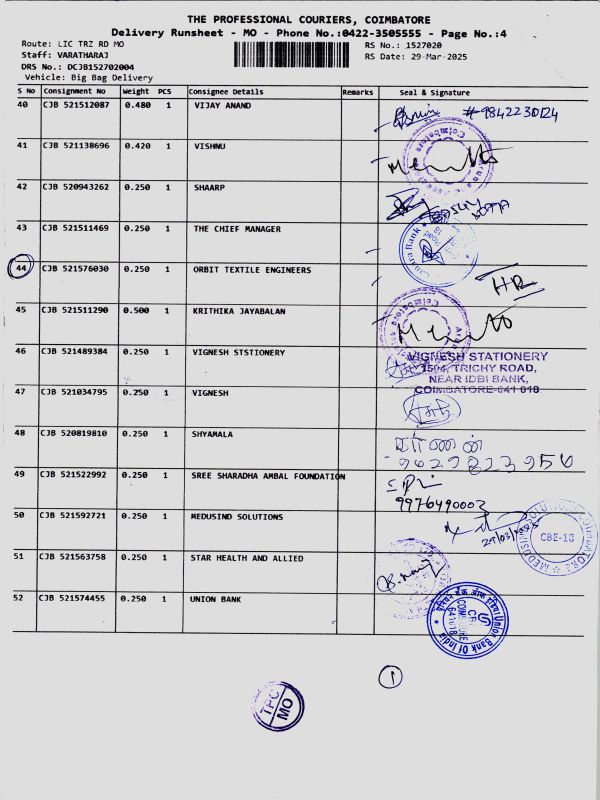 THE PROFESSIONAL COURIERS, COIMBATORE
Delivery Runsheet - MO - Phone No.:0422-3505555 - Page No.:4
Route: LIC TRZ RD MO
RS No.: 1527020
Staff: VARATHARAJ
RS Date: 29-Mar-2025
DRS No.: DCJB152702004
Vehicle: Big Bag Delivery
S No Consignment No Weight PCS Consignee Details Remarks Seal & Signature
40 CJB 521512087 0.480 1 VIJAY ANAND
41 CJB 521138696 0.420 1 VISHNU
Coimbatore
42 CJB 520943262 0.250 1 SHAARP
43 CJB 521511469 0.250 1 THE CHIEF MANAGER
44 CJB 521576030 0.250 1 ORBIT TEXTILE ENGINEERS
HR
45 CJB 521511290 0.500 1 KRITHIKA JAYABALAN
Coimbatore
46 CJB 521489384 0.250 1 VIGNESH STSTIONERY
VIGNESH STATIONERY
1504, TRICHY ROAD,
NEAR IDBI BANK,
COIMBATORE-641 018.
47 CJB 521034795 0.250 1 VIGNESH
48 CJB 520819810 0.250 1 SHYAMALA
49 CJB 521522992 0.250 1 SREE SHARADHA AMBAL FOUNDATION
9976490003
50 CJB 521592721 0.250 1 MEDUSIND SOLUTIONS
29/03/2025
CBE-18
51 CJB 521563758 0.250 1 STAR HEALTH AND ALLIED
52 CJB 521574455 0.250 1 UNION BANK
Union Bank Of India
1
TPC
MO